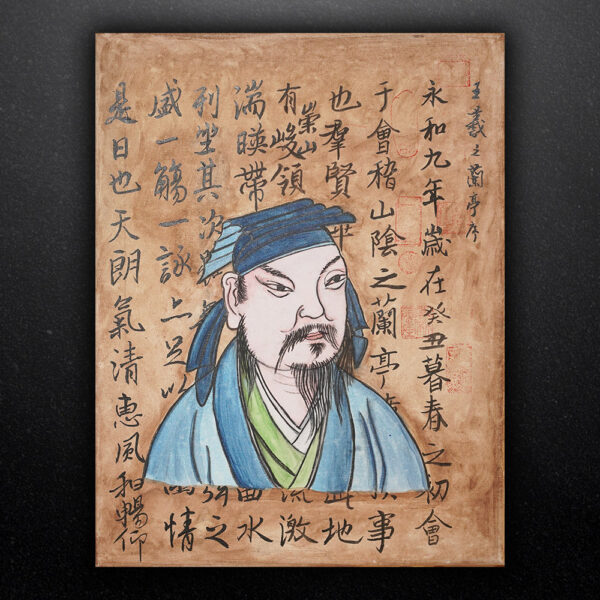 王羲之蘭亭序
永和九年歲在癸丑暮春之初會
于會稽山陰之蘭亭事
也羣賢地
有崇山峻領流激
湍暎帶曲水
列坐其次之
盛一觴一詠亦足以情
是日也天朗氣清惠風和暢仰